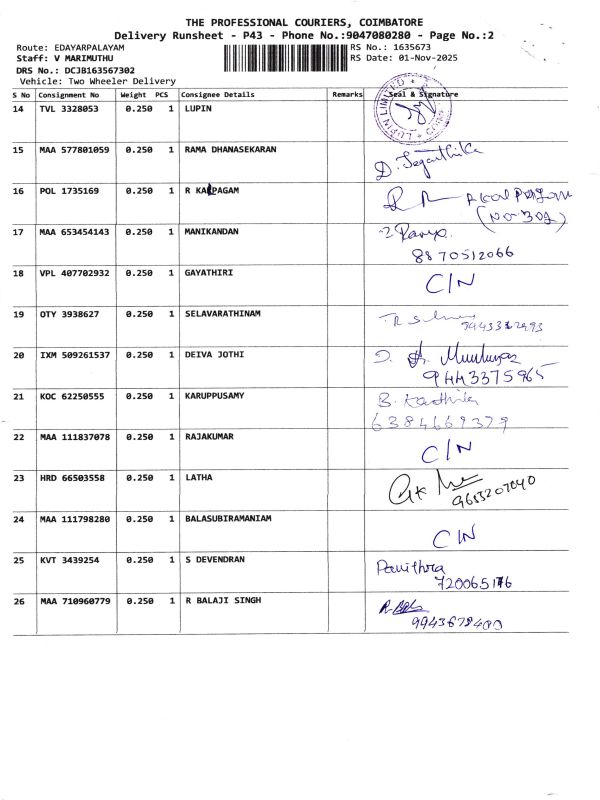 THE PROFESSIONAL COURIERS, COIMBATORE
Delivery Runsheet - P43 - Phone No.:9047080280 - Page No.:2
Route: EDAYARPALAYAM
RS No.: 1635673
Staff: V MARIMUTHU
RS Date: 01-Nov-2025
DRS No.: DCJB163567302
Vehicle: Two Wheeler Delivery
S No Consignment No Weight PCS Consignee Details Remarks Seal & Signature
14 TVL 3328053 0.250 1 LUPIN
LUPIN LIMITED
15 MAA 577801059 0.250 1 RAMA DHANASEKARAN
16 POL 1735169 0.250 1 R KALPAGAM
(No 302)
17 MAA 653454143 0.250 1 MANIKANDAN
8870512066
18 VPL 407702932 0.250 1 GAYATHIRI C/N
19 OTY 3938627 0.250 1 SELAVARATHINAM
20 IXM 509261537 0.250 1 DEIVA JOTHI
9443375965
21 KOC 62250555 0.250 1 KARUPPUSAMY B. Karthika
6384669379
22 MAA 111837078 0.250 1 RAJAKUMAR C/N
23 HRD 66503558 0.250 1 LATHA
9653207040
24 MAA 111798280 0.250 1 BALASUBIRAMANIAM C/N
25 KVT 3439254 0.250 1 S DEVENDRAN Pavithra
26 MAA 710960779 0.250 1 R BALAJI SINGH
9943678400